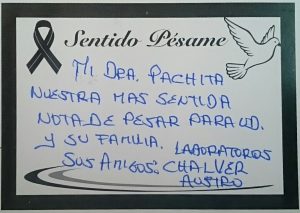 Sentido Pésame
Mi DRA. PACHITA
NUESTRA MAS SENTIDA
NOTA DE PESAR PARA UD.
Y SU FAMILIA. LABORATORIOS
SUS AMIGOS: CHALVER
AUSTRO